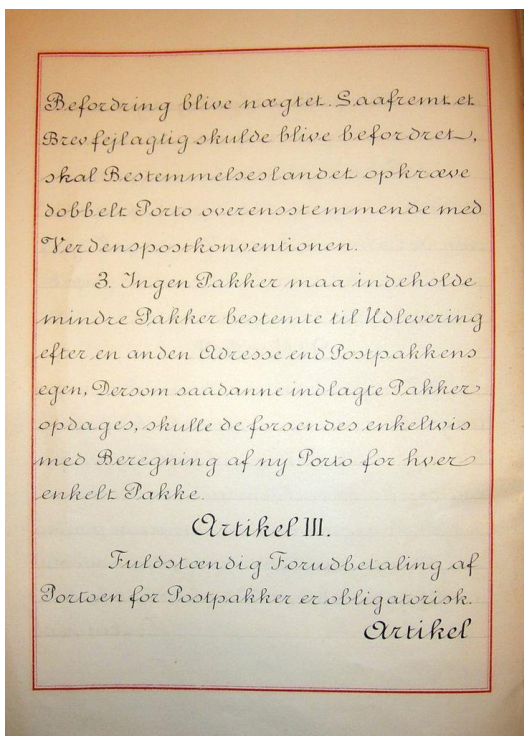 Befordring blive nægtet. Saafremt et
Brev fejlagtig skulde blive befordret,
skal Bestemmelseslandet opkræve
dobbelt Porto overensstemmende med
Verdenspostkonventionen.
3. Ingen Pakker maa indeholde
mindre Pakker bestemte til Udlevering
efter en anden Adresse end Postpakkens
egen, Dersom saadanne indlagte Pakker
opdages, skulle de forsendes enkeltvis
med Beregning af ny Porto for hver
enkelt Pakke.
Artikel III.
Fuldstændig Forudbetaling af
Portoen for Postpakker er obligatorisk.
Artikel